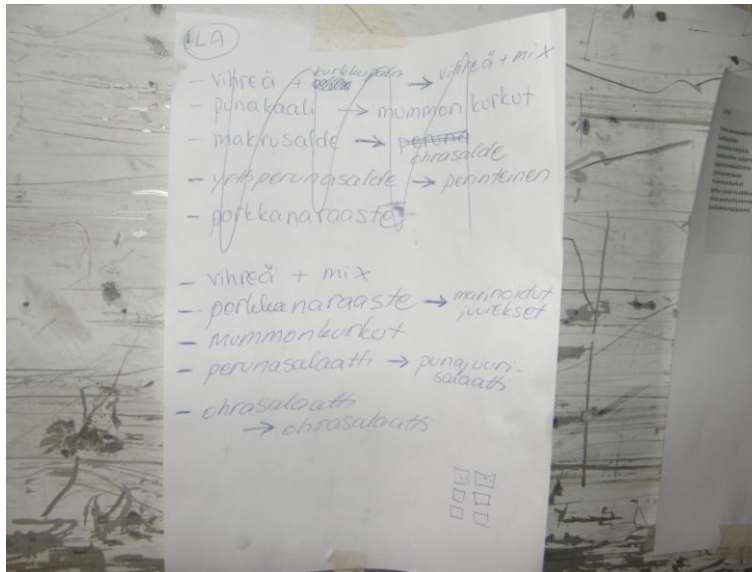 LA
- vihreä + kurkkupala → vihreä + mix
- punakaali → mummon kurkut
- makrusalde → peruna
ohrasalde
- yrttiperunasalde → perinteinen
- porkkanaraaste
- vihreä + mix
- porkkanaraaste → marinoidut
juurekset
- mummonkurkut
- perunasalaatti → punajuuri-
salaatti
- ohrasalaatti
→ ohrasalaatti